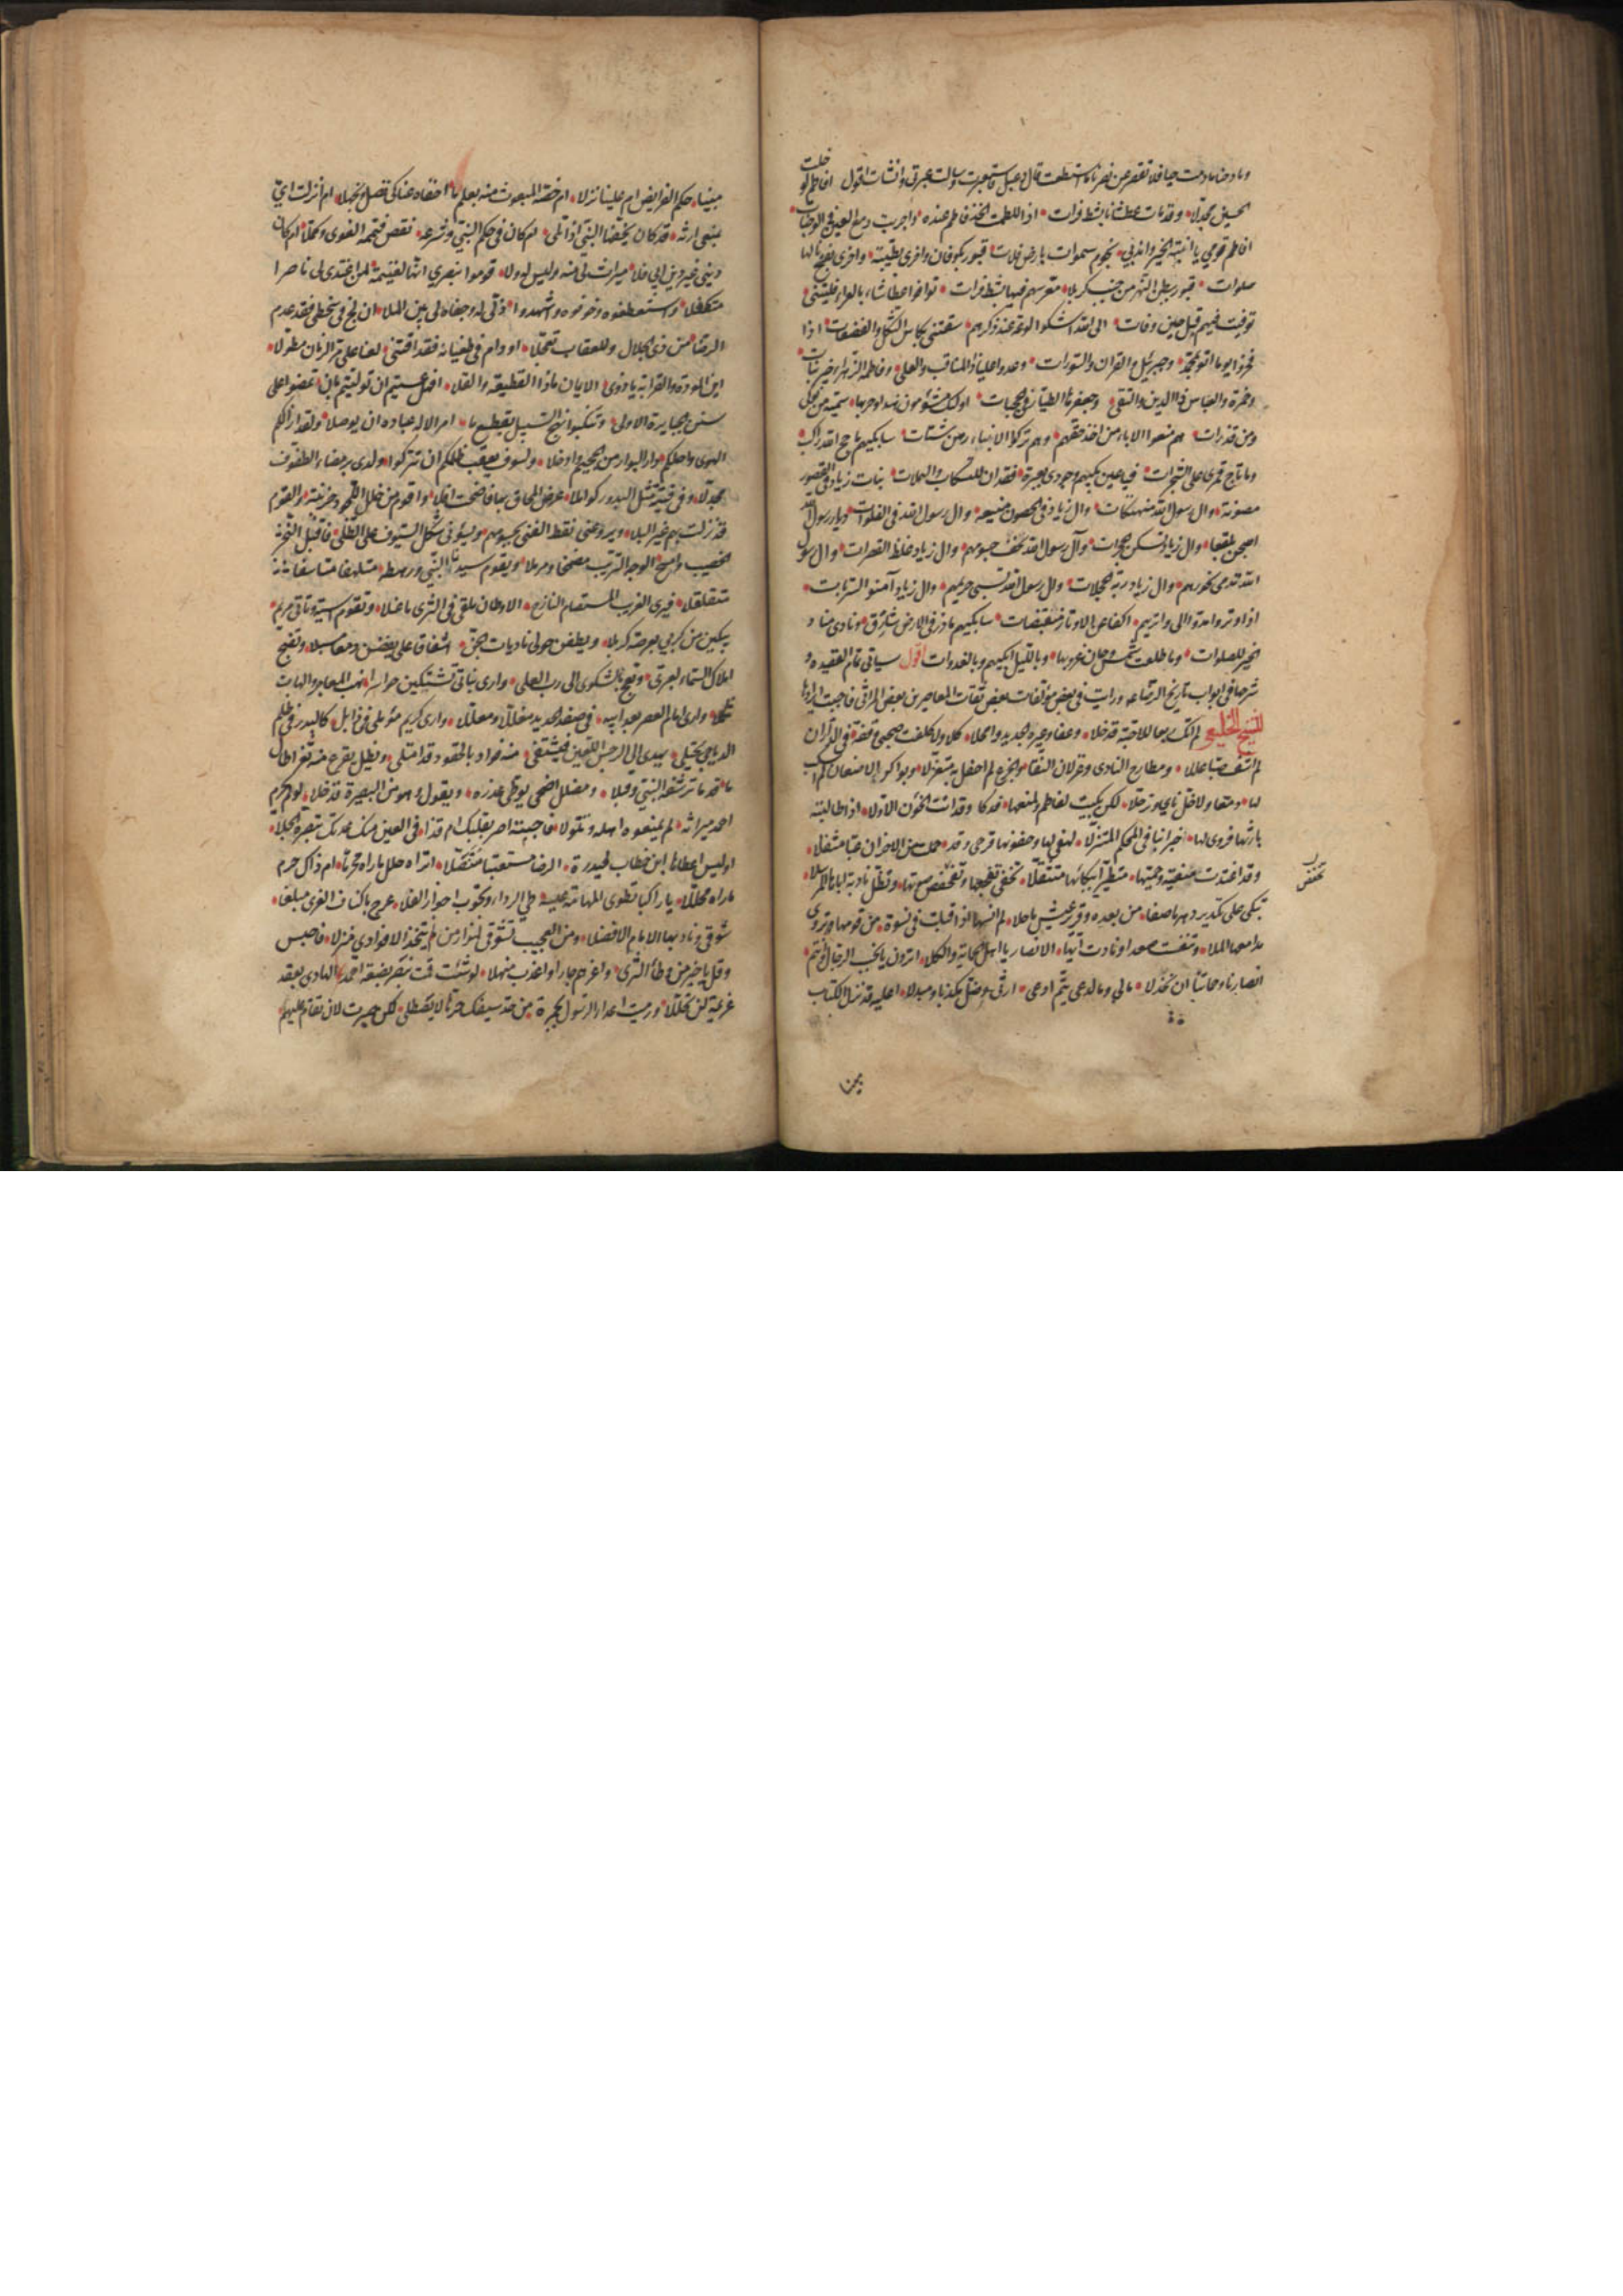 ومادحنا مادمت حيا فلا تقصر عن نصرنا ما استطعت قال دعبل فاستعبرت وسالت عبرتي وانشات اقول افاطم لو خلت
الحسين مجدلا وقد مات عطشانا بشط فرات اذا للطمت الخد فاطم عنده واجريت دمع العين في الوجنات
افاطم قومي يا ابنة الخير واندبي نجوم سموات بارض فلات قبور بكوفان واخرى بطيبة واخرى بفخ نالها
صلوات قبور ببطن النهر من جنب كربلا معرسهم فيها بشط فرات توافوا عطاشا بالعراء فليتني
توفيت فيهم قبل حين وفات الى الله اشكو لوعة عند ذكرهم سقتني بكاس الثكل والفضعات اذا
فخروا يوما اتوا بمحمد وجبرئيل والقران والسورات وعدوا عليا ذا المناقب والعلى وفاطمة الزهراء خير بنات
وحمزة والعباس ذا الدين والتقى وجعفرها الطيار في الحجبات اولئك مشؤمون هند وحربها سمية من نوكى
ومن قذرات هم منعوا الاباء من اخذ حقهم وهم تركوا الابناء رهن شتات سابكيهم ما حج لله راكب
وما ناح قمري على الشجرات فيا عين بكيهم وجودي بعبرة فقد ان للتسكاب والهملات بنات زياد في القصور
مصونة وال رسول الله منهتكات وال زياد في الحصون منيعة وال رسول الله في الفلوات ديار رسول الله
اصبحن بلقعا وال زياد تسكن الحجرات وآل رسول الله نحف جسومهم وال زياد غلظ القصرات وال رسول
الله تدمى نحورهم وال زياد ربة الحجلات وال رسول الله تسبى حريمهم وال زياد آمنوا السربات
اذا وتروا مدوا الى واتريهم اكفا عن الاوتار منقبضات سابكيهم ما ذر في الارض شارق ونادى مناد
الخير للصلوات وما طلعت شمس وحان غروبها وبالليل ابكيهم وبالغدوات اقول سياتي تمام القصيدة و
شرحها في ابواب تاريخ الرضا ورايت في بعض مؤلفات بعض ثقات المعاصرين بعض المراثي فاحببت ايرادها
للشيخ الخليعي لم ابك ربعا للاحبة قد خلا وعفا وغيره الجديد وامحلا كلا ولا كلفت صحبي وقفة في الدار ان
لم اشف صبا عللا ومطارح النادي وغزلان النقا والجزع لم احفل بها متغزلا وبواكر الاضعان لم اسكب
لها دمعا ولا خل ناى وترحلا لكن بكيت لفاطم ولمنعها فدكا وقد اتت الخؤن الاولا اذ طالبته
بارثها فروى لها خبرا ينافي المحكم المتنزلا لهفي لها وجفونها قرحى وقد حملت من الاحزان عبئا مثقلا
وقد اغتدت منفية وحميها متطير ابكائها متثقلا تخفي تفجعها وتخفض صوتها وتظل نادبة اباها المرسلا
تبكي على تكدير دهر ما صفا من بعده وقرير عيش ما حلا لم انسها اذ اقبلت في نسوة من قومها وتروي
مدامعها الملا وتنفست صعدا ونادت ايها الانصار يا اهل الحماية والكلا اترون يا نجب الرجال وانتم
انصارنا وحماتنا ان نخذلا مالي وما لدعي تيم ادعى ارثي وضل مكذبا ومبدلا اعليه قد نزل الكتاب
تخفض
مبينا حكم الفرايض ام علينا نزلا ام خصه المبعوث منه بعلم ما اخفاه عنا كي نضل ونجهلا ام انزلت اي
بمنعي ارثه قد كان يخفيها النبي اذا تلى ام كان في حكم النبي وشرعه نقص فتممه الغوي وكملا ام كان
ديني غير دين ابي فلا ميراث لي منه وليس له ولا قوموا بنصري انها لغنيمة لمن اغتدى لي ناصرا
متكفلا واستعطفوه وخوفوه واشهدوا ذلي له وجفاه لي بين الملا ان لج في سخطي فقد عدم
الرضا من ذي الجلال وللعقاب تعجلا او دام في طغيانه فقد اقتنى لعنا على مر الزمان مطولا
اين المودة والقرابة يا ذوى الايمان ماذا القطيعة والقلا افهل عسيتم ان توليتم بان تمضوا على
سنن الجبابرة الاولى وتنكبوا نهج السبيل بقطع ما امر الاله عباده ان يوصلا ولقد ازالكم
الهوى واحلكم دار البوار من الجحيم وادخلا ولسوف يعقب ظلمكم ان تتركوا ولدي برمضاء الطفوف
مجدلا في فتية مثل البدور كواملا عرض المحاق بها فاضحت افلا واقوم من خلل اللحود حزينة والقوم
قد نزلت بهم غير البلا ويروعني نقط القنى بجسومهم ويسؤني شكل السيوف على الطلى فاقبل النحر
الخضيب وامسح الوجه التريب مضمخا ومرملا ويقوم سيدنا النبي ورهطه متلهفا متاسفا
متقلقلا فيرى الغريب المستضام النازح الاوطان ملقى في الثرى ما غسلا وتقوم اسية وتاتي مريم
يبكين من كربي بعرصة كربلا ويطفن حولي نادبات الجن اشفاقا علي يفضن دمعا مسبلا وتضج
املاك السماء لعبرتي وتعج بالشكوى الى رب العلى وارى بناتي يشتكين حواسرا نهب المعاجر والهات
ثكلا وارى امام العصر بعد ابيه في صفد الحديد مغللا ومعللا وارى كريم مؤملي في ذابل كالبدر في ظلم
الدياجي يجتلى يهدى الى الرجس اللعين فيشتفى منه فواد بالحقود قد امتلى ويظل يقرع منه ثغرا طال
ما قدما ترشفه النبي وقبلا ومضلل اضحى يوطئ عذره ويقول وهو من البصيرة قد خلا لو لم يحرم
احمد ميراثه لم يمنعوه اهله وتمولا فاجبته اصر بقلبك ام قذا في العين منك عدتك تبصرة الجلا
اوليس اعطاها ابن خطاب لحيدرة الرضا مستعتبا متنصلا اتراه حلل ماراه محرما ام ذاك حرم
ماراه محللا يا راكبا تطوى المهامه عيسه طي الردا وتجوب اجواز الفلا عرج باكناف الغري مبلغا
شوقي وناد بها الامام الافضلا ومن العجيب تشوقي لمزار من لم يتخذ الا فؤادي منزلا فاحبس
وقل يا خير من وطئ الثرى واعزهم جارا واعذب منهلا لو شئت قمت بنصر بضعة احمد الهادي بعقد
عزيمة لن تحللا ورميت اعداء الرسول بجمرة من حد سيفك حرها لا يصطلى لكن صبرت لان تقام عليهم